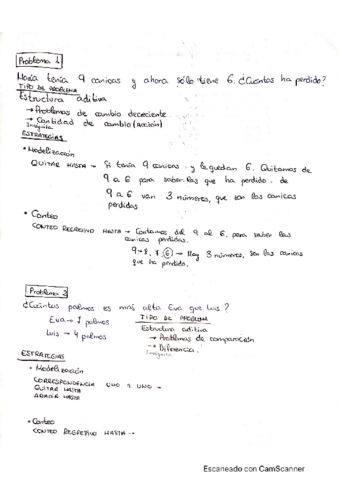 Problema 1
María tenía 9 canicas y ahora sólo tiene 6. ¿Cuántas ha perdido?
TIPO DE PROBLEMA
Estructura aditiva
→ Problemas de cambio decreciente
→ Cantidad de cambio (acción)
Incógnita
ESTRATEGIAS
• Modelización
QUITAR HASTA → Si tenía 9 canicas y le quedan 6. Quitamos de
9 a 6 para saber las que ha perdido. de
9 a 6 van 3 números, que son las canicas
perdidas
• Conteo
CONTEO REGRESIVO HASTA → Contamos del 9 al 6, para saber las
canicas perdidas.
9→8, 7, 6 → Hay 3 números, son las canicas
que ha perdido.
Problema 2
¿Cuántos palmos es más alta Eva que Luis?
Eva → 7 palmos
Luis → 4 palmos
TIPO DE PROBLEMA
Estructura aditiva
→ Problemas de comparación
→ Diferencia
Incógnita
ESTRATEGIAS
• Modelización
CORRESPONDENCIA UNO A UNO -
QUITAR HASTA
AÑADIR HASTA
• Conteo
CONTEO REGRESIVO HASTA -
Escaneado con CamScanner